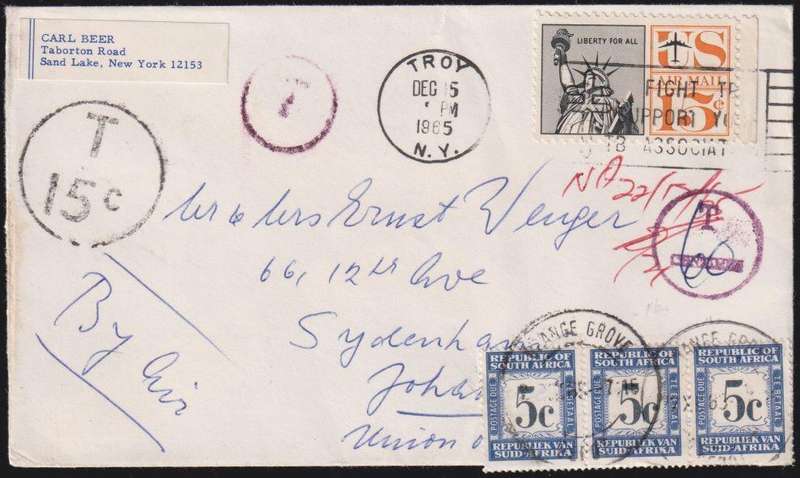 CARL BEER
Taborton Road
Sand Lake, New York 12153
T
15c
T
TROY
DEC 15
PM
1965
N.Y.
LIBERTY FOR ALL
US
AIR MAIL
15c
FIGHT TB
SUPPORT YO
TB ASSOCIAT
NP 22/12/65
T
CENTIMES
60
Mr & Mrs Ernst Wenger
66, 12th Ave
Sydenham
Joha
Union o
By Air
ORANGE GROVE
REPUBLIC OF
SOUTH AFRICA
POSTAGE DUE
5c
TE BETAAL
REPUBLIEK VAN
SUID-AFRIKA
REPUBLIC OF
SOUTH AFRICA
POSTAGE DUE
5c
TE BETAAL
REPUBLIEK VAN
SUID-AFRIKA
ORANGE GRO
REPUBLIC OF
SOUTH AFRICA
POSTAGE DUE
5c
TE BETAAL
REPUBLIEK VAN
SUID-AFRIKA